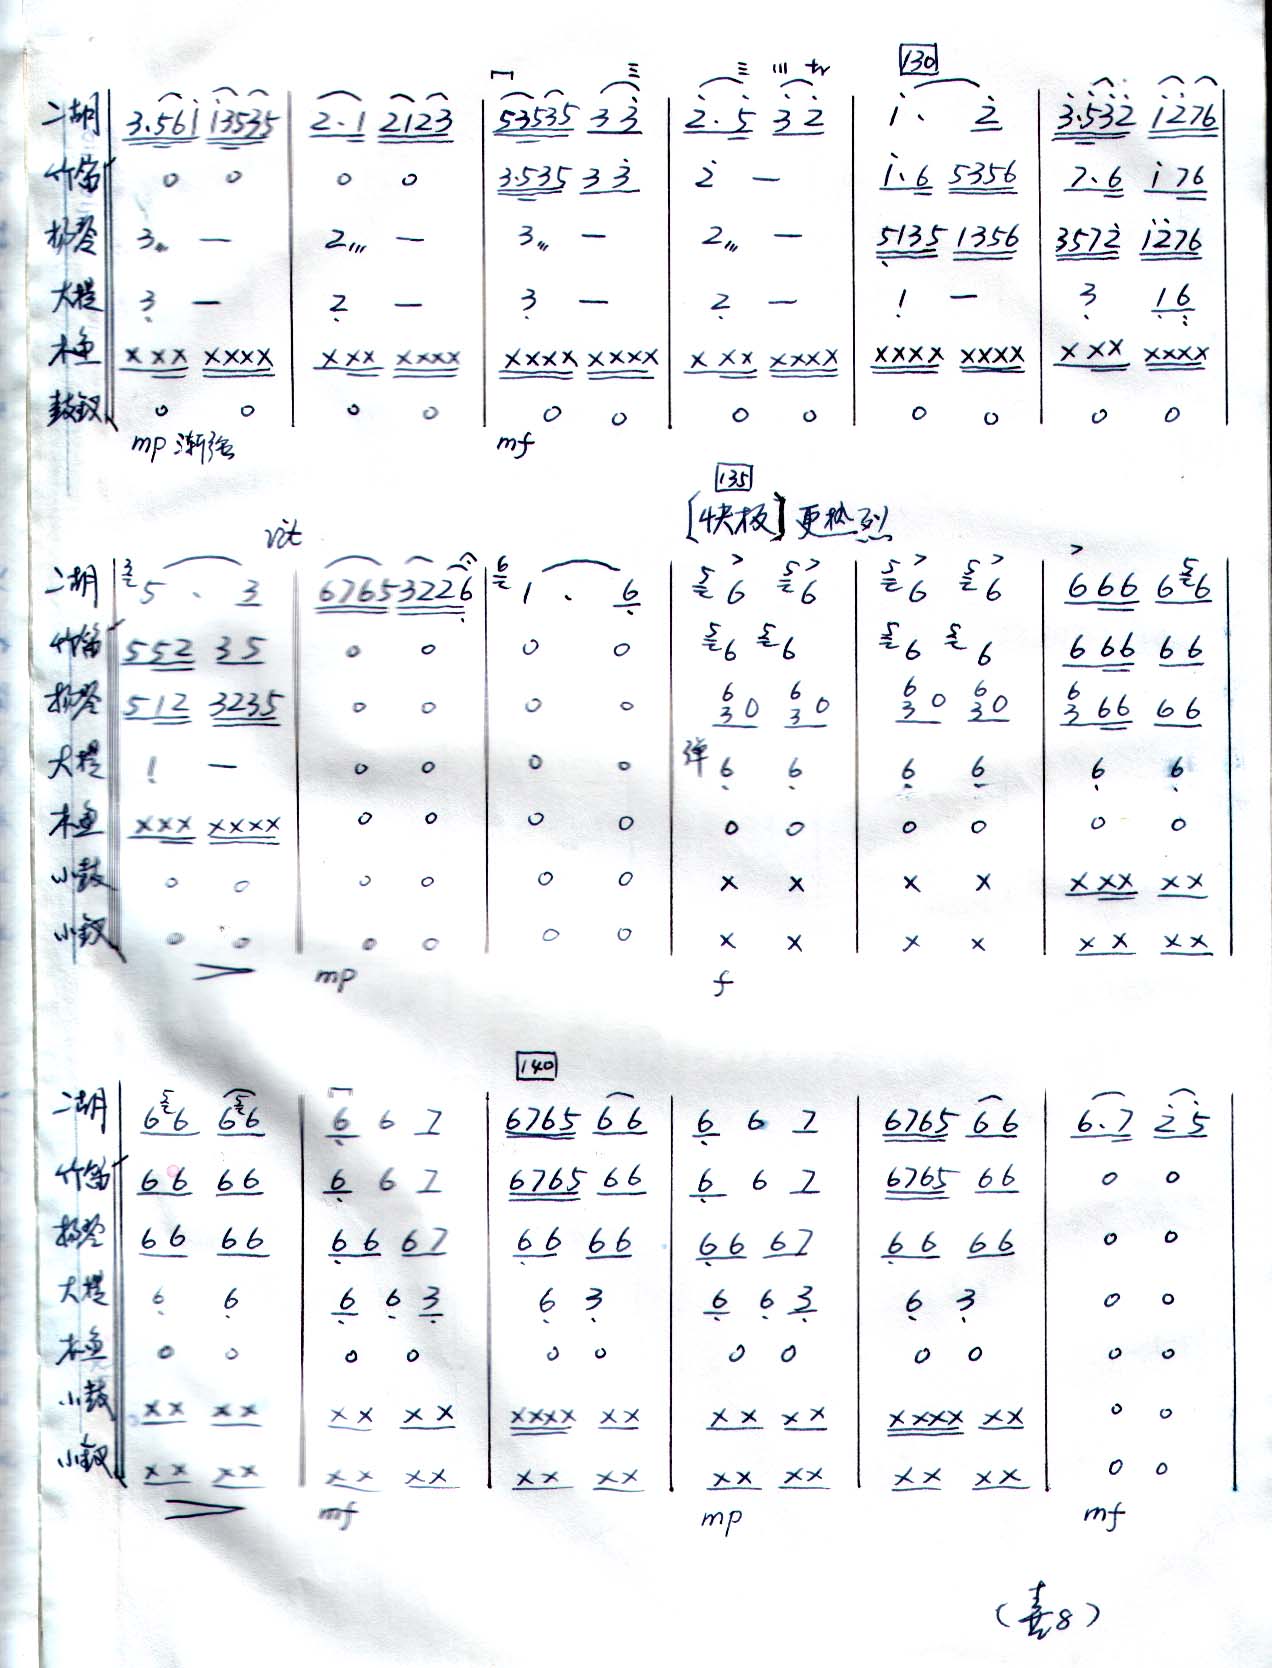 130
二胡 3.561 13535 | 2.1 2123 | 53535 33 | 2.5 32 tr | 1. 2 | 3.532 1276
竹笛 0 0 | 0 0 | 3.535 33 | 2 — | 1.6 5356 | 7.6 176
扬琴 3 — | 2 — | 3 — | 2 — | 5135 1356 | 3572 1276
大提 3 — | 2 — | 3 — | 2 — | 1 — | 3 16
木鱼 xxx xxxx | xxx xxxx | xxxx xxxx | xxx xxxx | xxxx xxxx | xxx xxxx
鼓钗 0 0 | 0 0 | 0 0 | 0 0 | 0 0 | 0 0
mp 渐强 mf
135
rit [快板] 更热烈
二胡 3 5 . 3 | 6765 3226 | 6 1 . 6 | 5 6 5 6 | 5 6 5 6 | 666 6 5 6
竹笛 552 35 | 0 0 | 0 0 | 5 6 5 6 | 5 6 5 6 | 666 66
扬琴 512 3235 | 0 0 | 0 0 | 6 3 0 6 3 0 | 6 3 0 6 3 0 | 6 3 66 66
大提 1 — | 0 0 | 0 0 | 弹 6 6 | 6 6 | 6 6
木鱼 xxx xxxx | 0 0 | 0 0 | 0 0 | 0 0 | 0 0
小鼓 0 0 | 0 0 | 0 0 | x x | x x | xxx xx
小钗 0 0 | 0 0 | 0 0 | x x | x x | xx xx
> mp f
140
二胡 6 5 6 6 5 6 | 6 6 7 | 6765 66 | 6 6 7 | 6765 66 | 6.7 25
竹笛 66 66 | 6 6 7 | 6765 66 | 6 6 7 | 6765 66 | 0 0
扬琴 66 66 | 66 67 | 66 66 | 66 67 | 66 66 | 0 0
大提 6 6 | 6 6 3 | 6 3 | 6 6 3 | 6 3 | 0 0
木鱼 0 0 | 0 0 | 0 0 | 0 0 | 0 0 | 0 0
小鼓 xx xx | xx xx | xxxx xx | xx xx | xxxx xx | 0 0
小钗 xx xx | xx xx | xx xx | xx xx | xx xx | 0 0
> mf mp mf
(喜8)